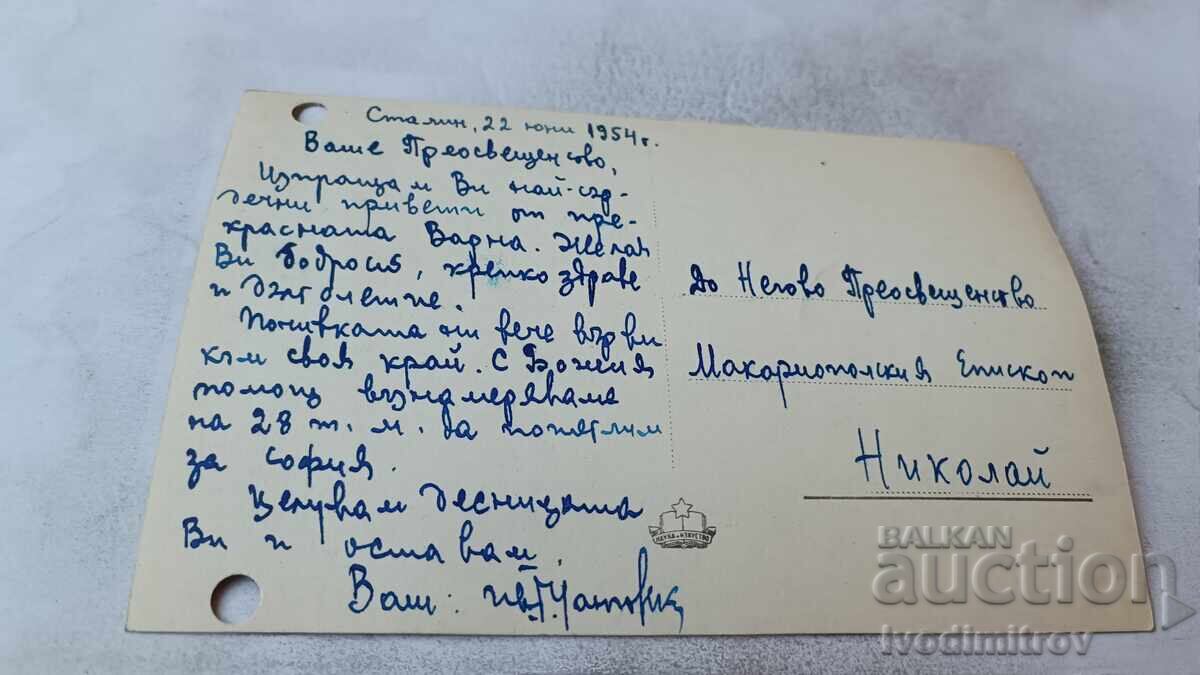 Сталин, 22 юни 1954 г.
Ваше Преосвещенство,
Изпращам Ви най-сър-
дечни привети от пре-
красната Варна. Желая
Ви бодрост, крепко здраве
и дълголетие.
Почивката ни вече върви
към своя край. С Божия
помощ възнамеряваме
на 28 т. м. да попътуим
за София.
Целувам десницата
Ви и оставам
Ваш:
До Негово Преосвещенство
Макариополския Епископ
Николай
НАУКА И ИЗКУСТВО
BALKAN
auction
Ivodimitrov